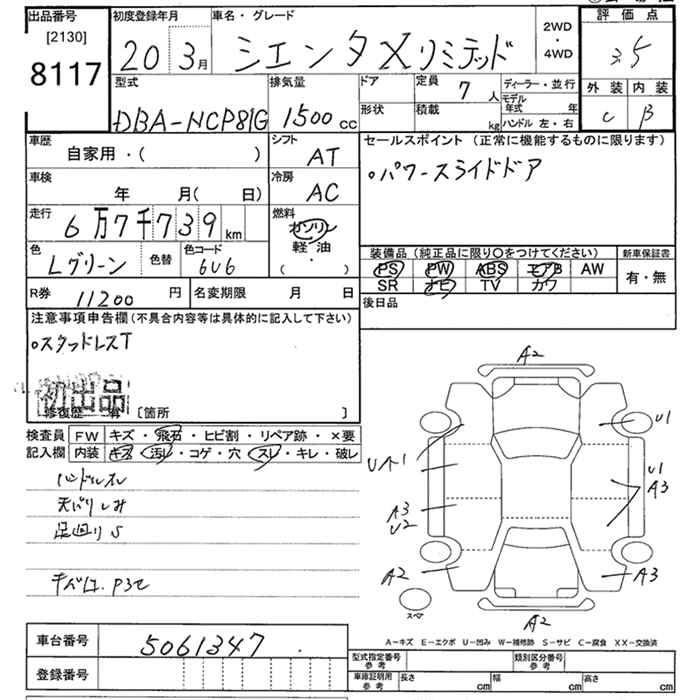 出品番号
[2130]
8117
初度登録年月
20 3月
車名・グレード
シエンタXリミテッド
2WD
・
4WD
評価点
3.5
外装 内装
C B
型式
DBA-NCP81G
排気量
1500cc
ドア
形状
定員
7人
積載
kg
ディーラー・並行
モデル年式 年
ハンドル 左・右
車歴
自家用・( )
シフト
AT
車検
年 月( 日)
冷房
AC
走行
6万7千739km
燃料
ガソリン
軽油
( ・ )
色
Lグリーン
色替
色コード
6U6
R券
11200円
名変期限 月 日
セールスポイント (正常に機能するものに限ります)
○パワースライドドア
装備品(純正品に限り○をつけてください)
PS PW ABS エアB AW
SR ナビ TV カワ
新車保証書
有・無
後日品
注意事項申告欄(不具合内容等は具体的に記入して下さい)
○スタッドレスT
初出品
修復歴 有 [箇所 ]
検査員
記入欄
FW キズ・飛石・ヒビ割・リペア跡・×要
内装 キズ・汚レ・コゲ・穴・スレ・キレ・破レ
ハンドルスレ
天バリしみ
足廻りS
A2
U1
U1
A3
A3
U2
A2
A3
スペア
A2
A-キズ E-エクボ U-凹み W-補修跡 S-サビ C-腐食 XX-交換済
車台番号
5061347
登録番号
型式指定番号
参考
類別区分番号
参考
車庫証明用
参考
長さ cm
幅 cm
高さ cm